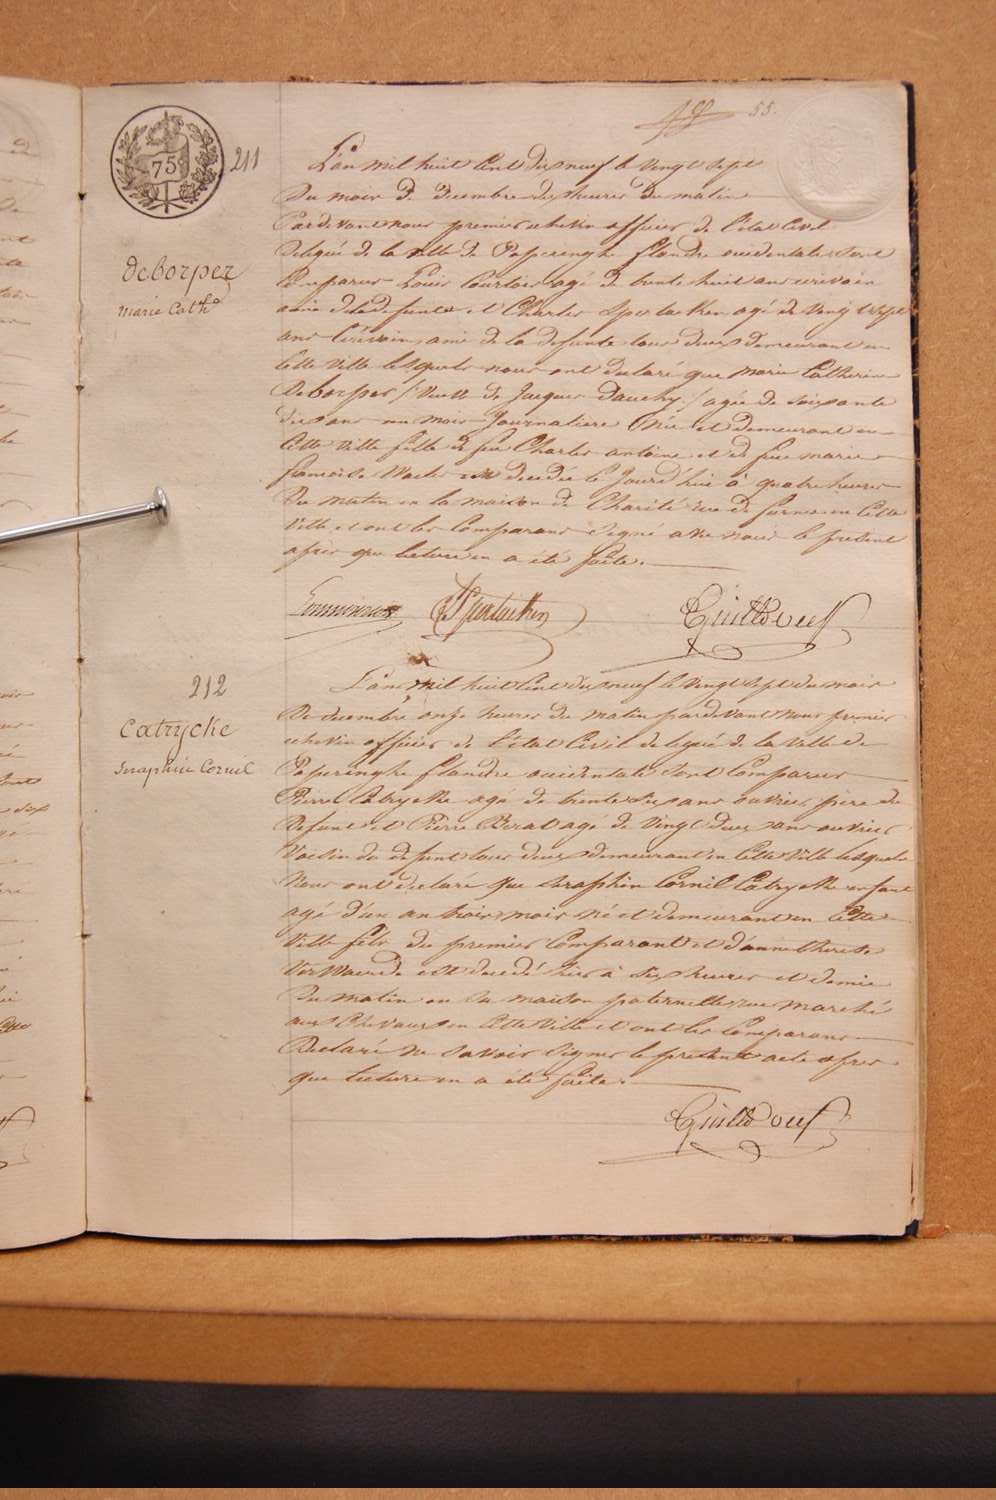 55.
75
211
L'an mil huit cent dix neuf le vingt sept
du mois de Decembre dix heures du matin
Pardevant nous premier echevin officier de l'état civil
delegué de la ville de Poperinghe flandre occidentale sont
comparus Louis Courtois agé de trente huit ans ecrivain
amie de la defunte et Charles Sperlaeken agé de vingt sept
ans Ecrivain, amie de la defunte tous deux demeurant en
cette ville lesquels nous ont declaré que marie Catherine
Deborper / veuve de Jacques Dauchy / agée de soixante
dix ans un mois Journaliere Née et demeurant en
cette ville fille de feu Charles antoine et de feue marie
francoise est decedée le Jourd'huie à quatre heures
du matin en la maison de Charité rue de furnes en cette
ville et ont les comparans signé avec nous le present
après que lecture en a été faite.
deborper
marie Cathe
Sperlaeken
Guilld oeuf
212
L'an mil huit cent dix neuf le vingt sept du mois
de decembre onze heures du matin pardevant nous premier
echevin officier de l'état civil delegué de la ville de
Poperinghe flandre occidentale sont comparus
Pierre Catrycke agé de trente six ans ouvrier père du
defunt et Pierre agé de vingt deux ans ouvrier
voisin du defunt tous deux demeurant en cette ville lesquels
nous ont declaré que seraphin Cornil Catrycke enfant
agé d'un an trois mois né et demeurant en cette
ville fils du premier comparant et d'anne therese
est decedé hier à six heures et demie
du matin en sa maison paternelle rue marché
aux chevaux en cette ville et ont les comparans
declaré ne savoir signer le present acte apres
que lecture en a été faite.
Catrycke
Seraphin Cornil
Guilld oeuf